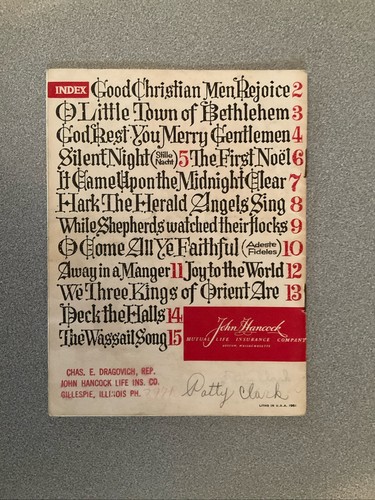 INDEX Good Christian Men Rejoice 2
O Little Town of Bethlehem 3
God Rest You Merry Gentlemen 4
Silent Night (Stille Nacht) 5 The First Noël 6
It Came Upon the Midnight Clear 7
Hark The Herald Angels Sing 8
While Shepherds watched their flocks 9
O Come All Ye Faithful (Adeste Fideles) 10
Away in a Manger 11 Joy to the World 12
We Three Kings of Orient Are 13
Deck the Halls 14
The Wassail Song 15
John Hancock
MUTUAL LIFE INSURANCE COMPANY
BOSTON, MASSACHUSETTS
CHAS. E. DRAGOVICH, REP.
JOHN HANCOCK LIFE INS. CO.
GILLESPIE, ILLINOIS PH.
Patty Clark
LITHO IN U.S.A.